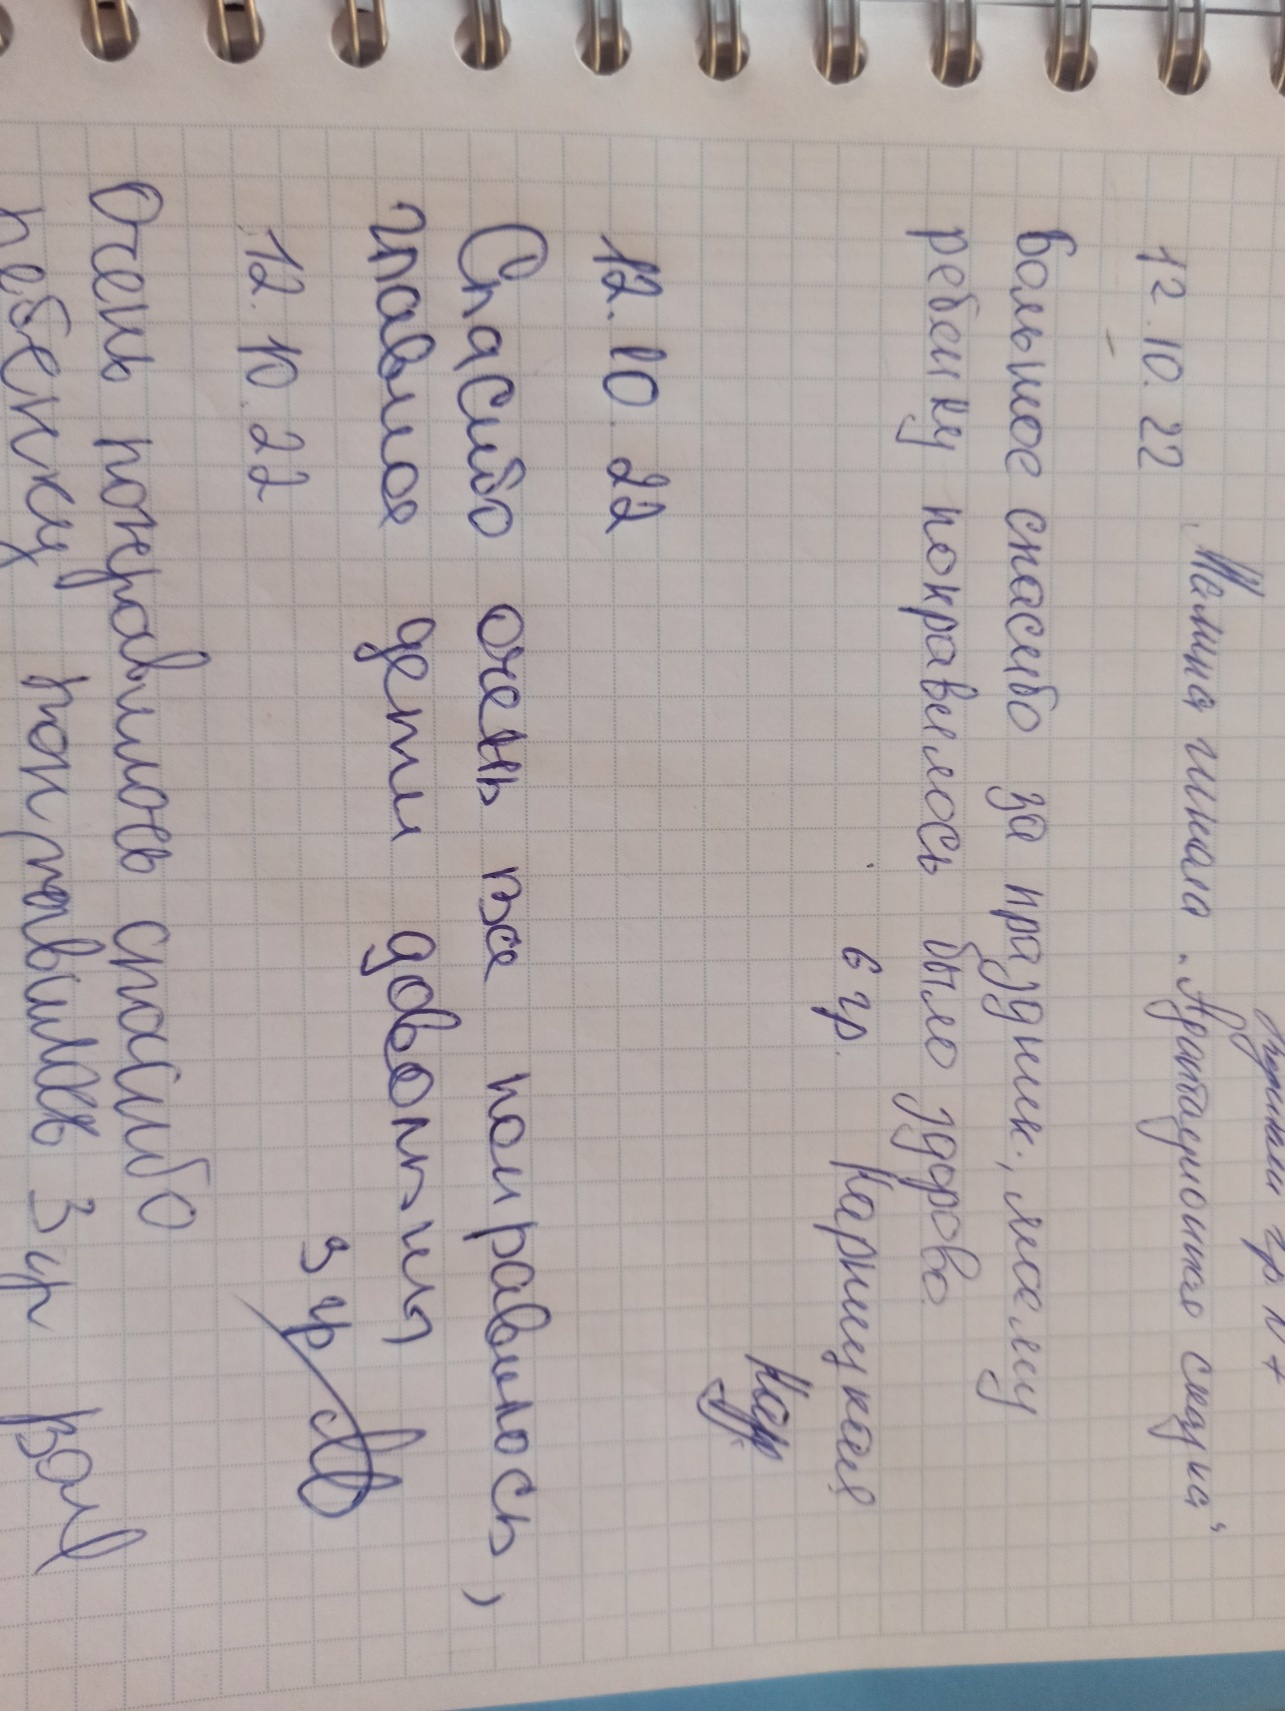 гр №
12.10.22 Мамина школа „Адаптационная сказка"
Большое спасибо за праздник, моему
ребенку понравилось было здорово.
6 гр.
12.10.22
Спасибо очень все понравилось,
главное дети довольны
3 гр
12.10.22
Очень понравилось спасибо
ребенку понравилось 3 гр